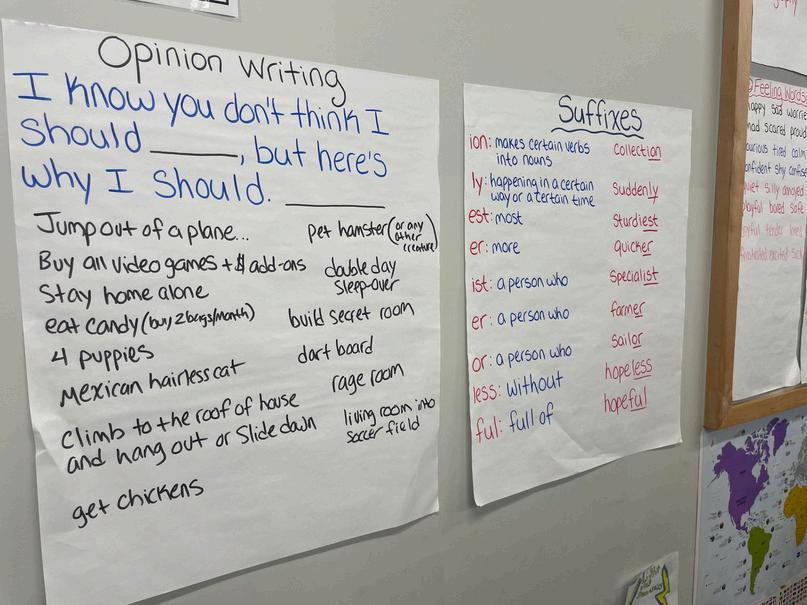 Opinion Writing
I know you don't think I
should ______, but here's
why I should. ______
Jump out of a plane...
Buy all video games + $ add-ons
Stay home alone
eat candy (buy 2 bags/month)
4 puppies
Mexican hairless cat
Climb to the roof of house
and hang out or slide down
get chickens
pet hamster (or any
other
creature)
double day
sleep-over
build secret room
dart board
rage room
living room into
soccer field
Suffixes
ion: makes certain verbs
into nouns
collection
ly: happening in a certain
way or a certain time
suddenly
est: most
sturdiest
er: more
quicker
ist: a person who
specialist
er: a person who
farmer
or: a person who
sailor
less: without
hopeless
ful: full of
hopeful
Feeling Words
happy sad worrie
mad scared proud
curious tired calm
onfident shy confuse
quiet silly annoyed
playful bored safe